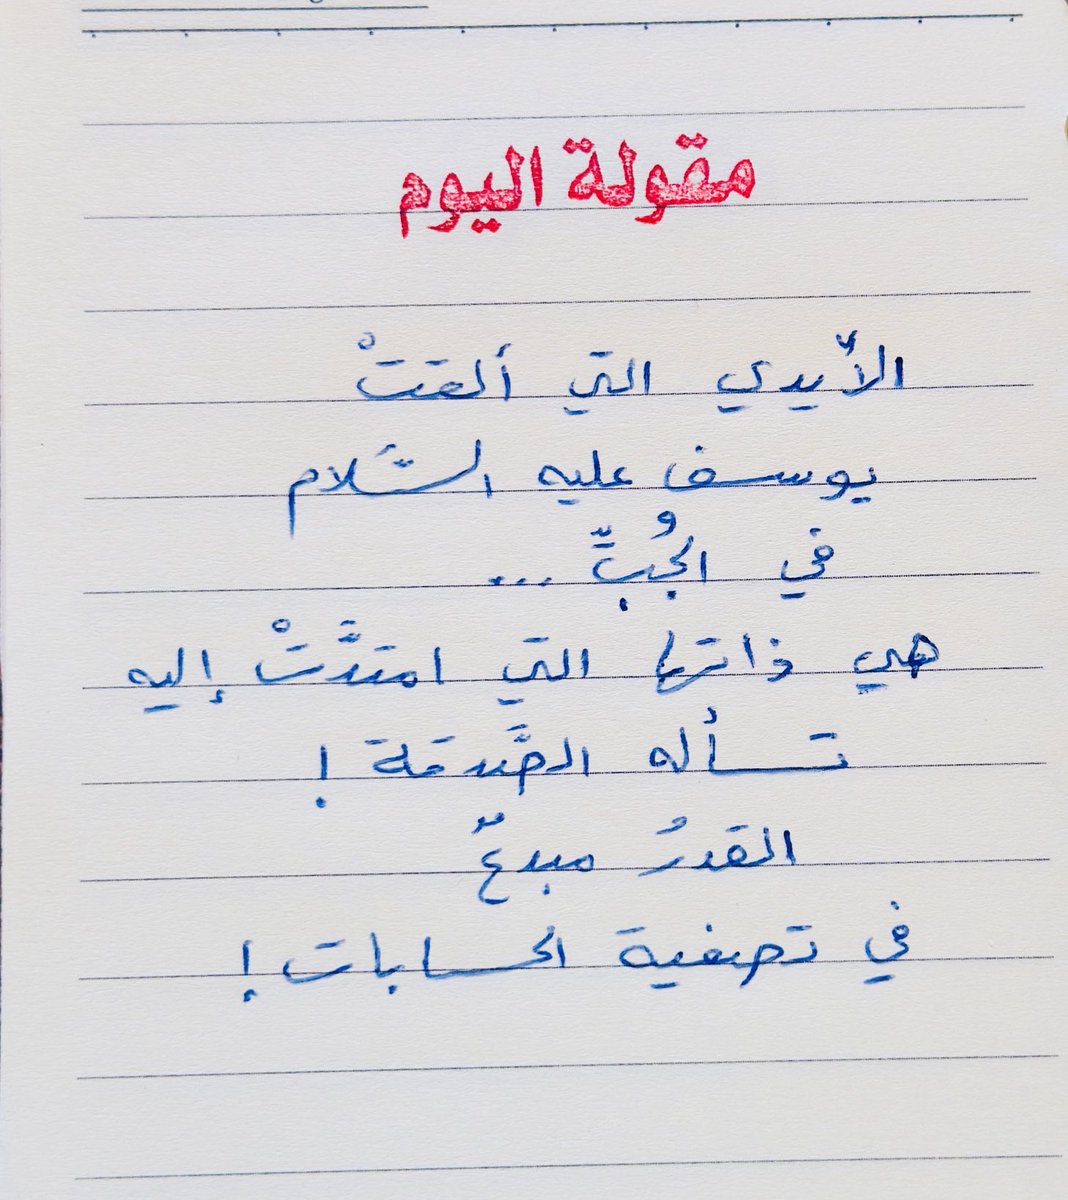 مقولة اليوم
الأيدي التي ألقتْ
يوسف عليه السَّلام
في الجُبِّ ...
هي ذاتها التي امتدَّتْ إليه
تسأله الصَّدقة !
القدرُ مبدعٌ
في تصفية الحسابات !